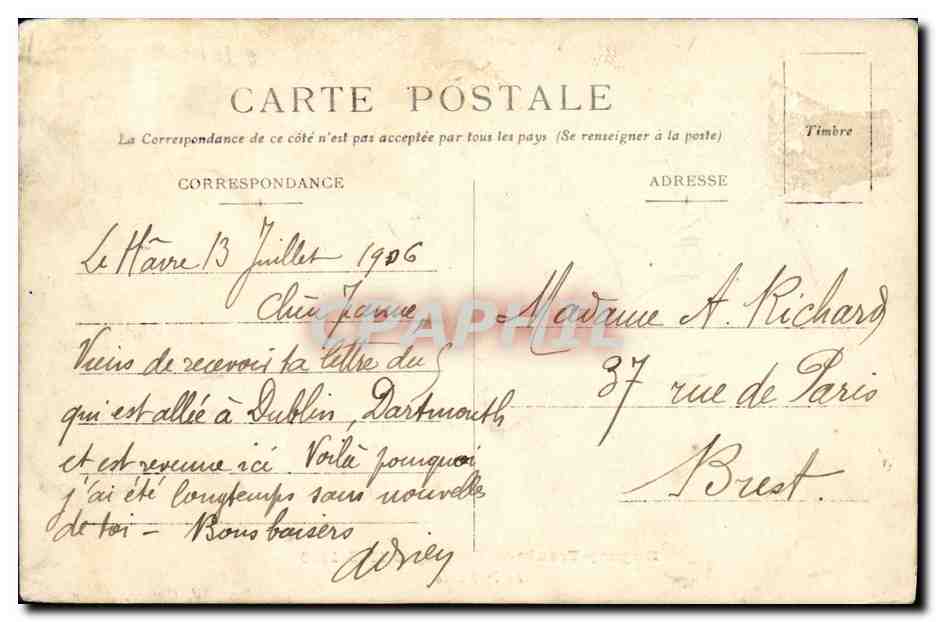 CARTE POSTALE
La Correspondance de ce côté n'est pas acceptée par tous les pays (Se renseigner à la poste)
Timbre
CORRESPONDANCE
Le Hâvre 13 Juillet 1906
Jeanne,
Viens de recevoir ta lettre du 5
qui est allée à Dublin, Dartmouth
et est revenue ici. Voilà pourquoi
j'ai été longtemps sans nouvelles
de toi - Bons baisers
Adrien
ADRESSE
Madame A. Richard
37 rue de Paris
Brest.
CPAPHIL